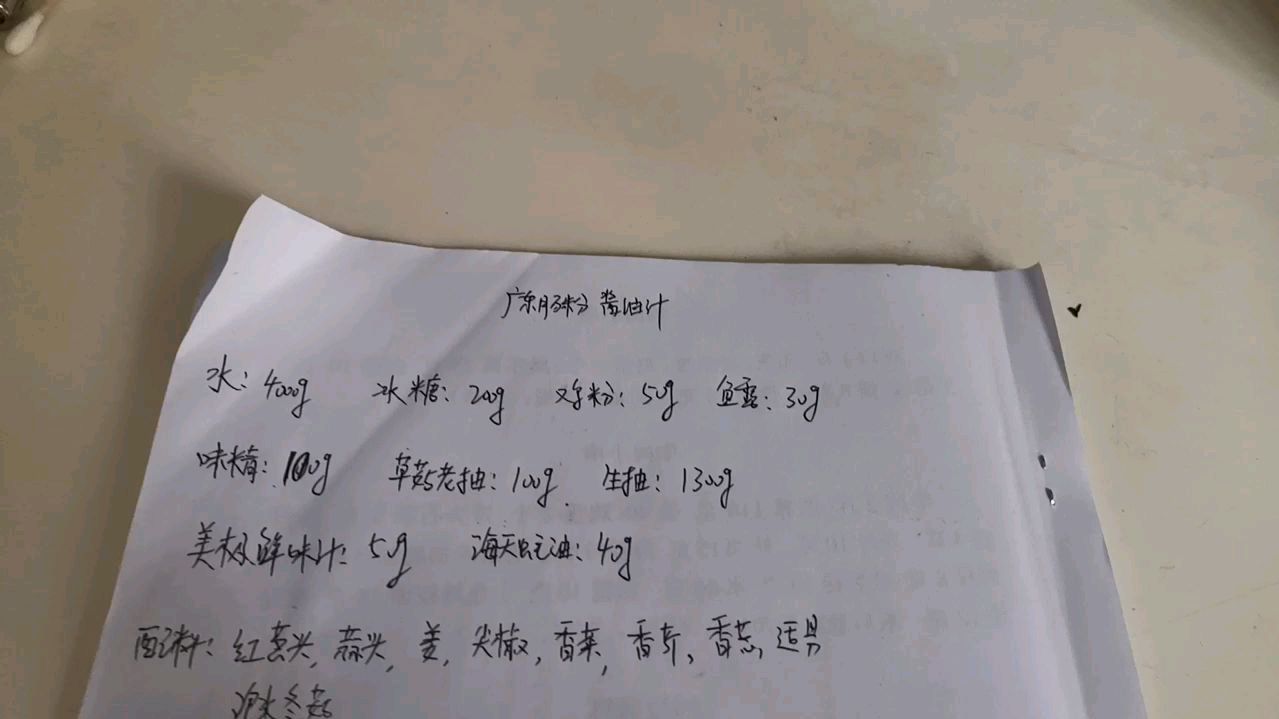 广东肠粉酱油汁
水：400g 冰糖：200g 鸡粉：50g 鱼露：30g
味精：100g 草菇老抽：100g 生抽：1300g
美极鲜味汁：50g 海天蚝油：40g
配料：红葱头，蒜头，姜，尖椒，香菜，香芹，香葱，适量
冬菇